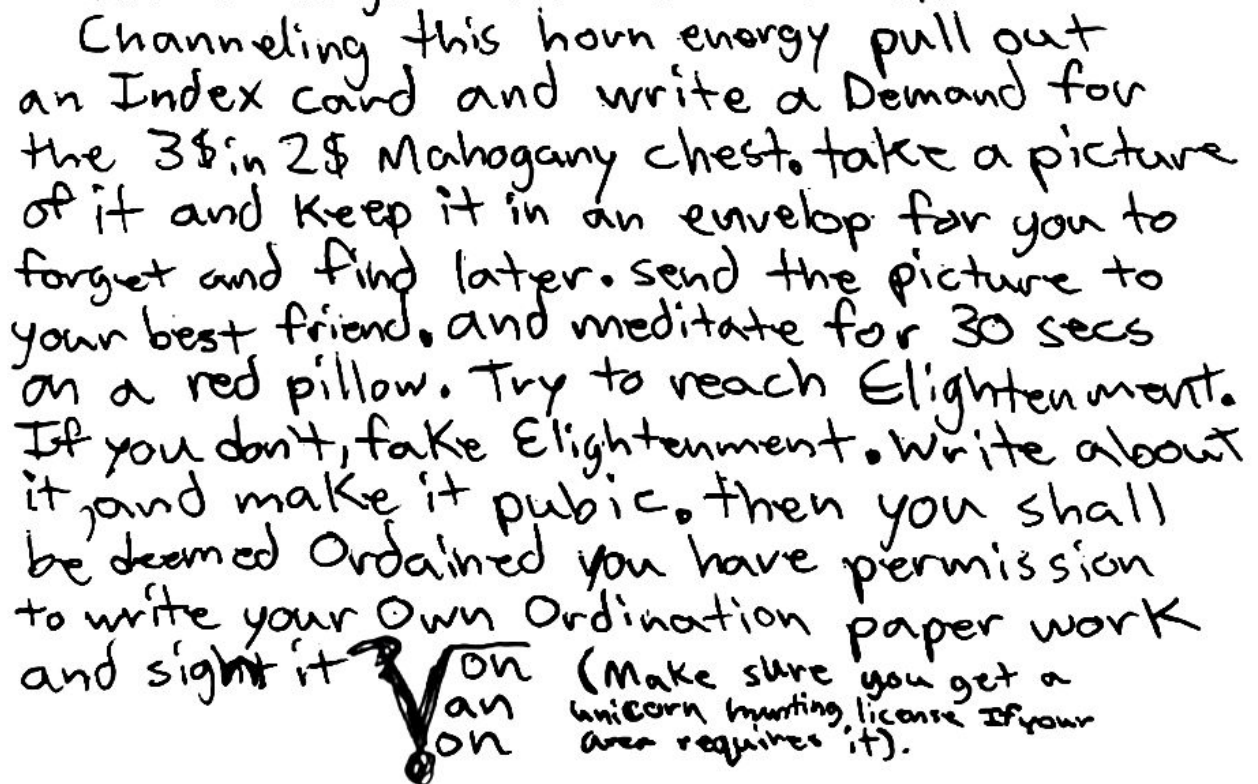 Channeling this horn energy pull out
an Index card and write a Demand for
the 3$ in 2$ Mahogany chest. take a picture
of it and keep it in an envelop for you to
forget and find later. send the picture to
your best friend. and meditate for 30 secs
on a red pillow. Try to reach Elightenment.
If you don't, fake Elightenment. Write about
it, and make it pubic. then you shall
be deemed Ordained you have permission
to write your Own Ordination paper work
and sight it V on (Make sure you get a
an unicorn hunting license If your
on area requires it).